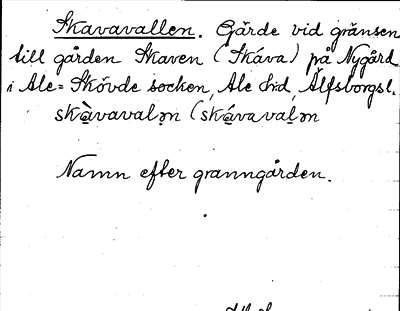 Skavavallen. Gärde vid gränsen
till gården Skaven (Skáva) på Nygård
i Ale-Skövde socken, Ale hd, Älfsborgsl.
skàvavalən (skávavalən
Namn efter granngården.